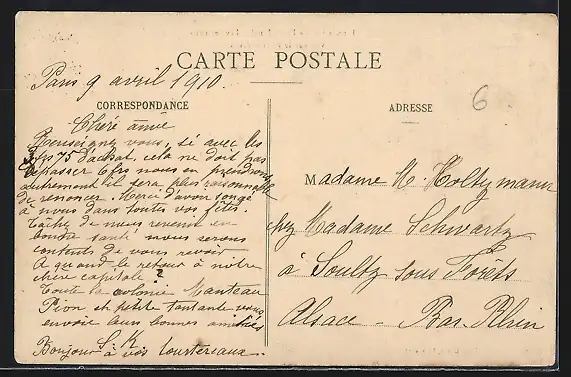 CARTE POSTALE
Paris 9 avril 1910.
CORRESPONDANCE
Chère amie
Renseignez vous, si avec les
75 d'achat, cela ne doit pas
dépasser 6frs nous en prendrons
autrement il sera plus raisonnable
de renoncer. Merci d'avoir songé
à nous dans toutes vos fêtes.
Tâchez de nous revenir en
bonne santé nous serons
contents de vous revoir
A quand le retour à notre
chère capitale ?
Toute la colonie Manteau
Pion et petite tantante vous
envoie leurs bonnes amitiés
S. K.
Bonjour à vos tourtereaux.
ADRESSE
6
Madame M. Holtzmann
chez Madame Schwartz
à Soultz sous Forêts
Alsace - Bas. Rhin